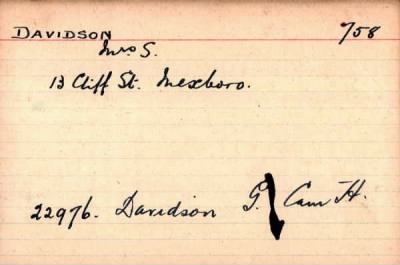 DAVIDSON 758
Mrs S.
13 Cliff St. Mexboro.
22976. Davidson G. Cam H.